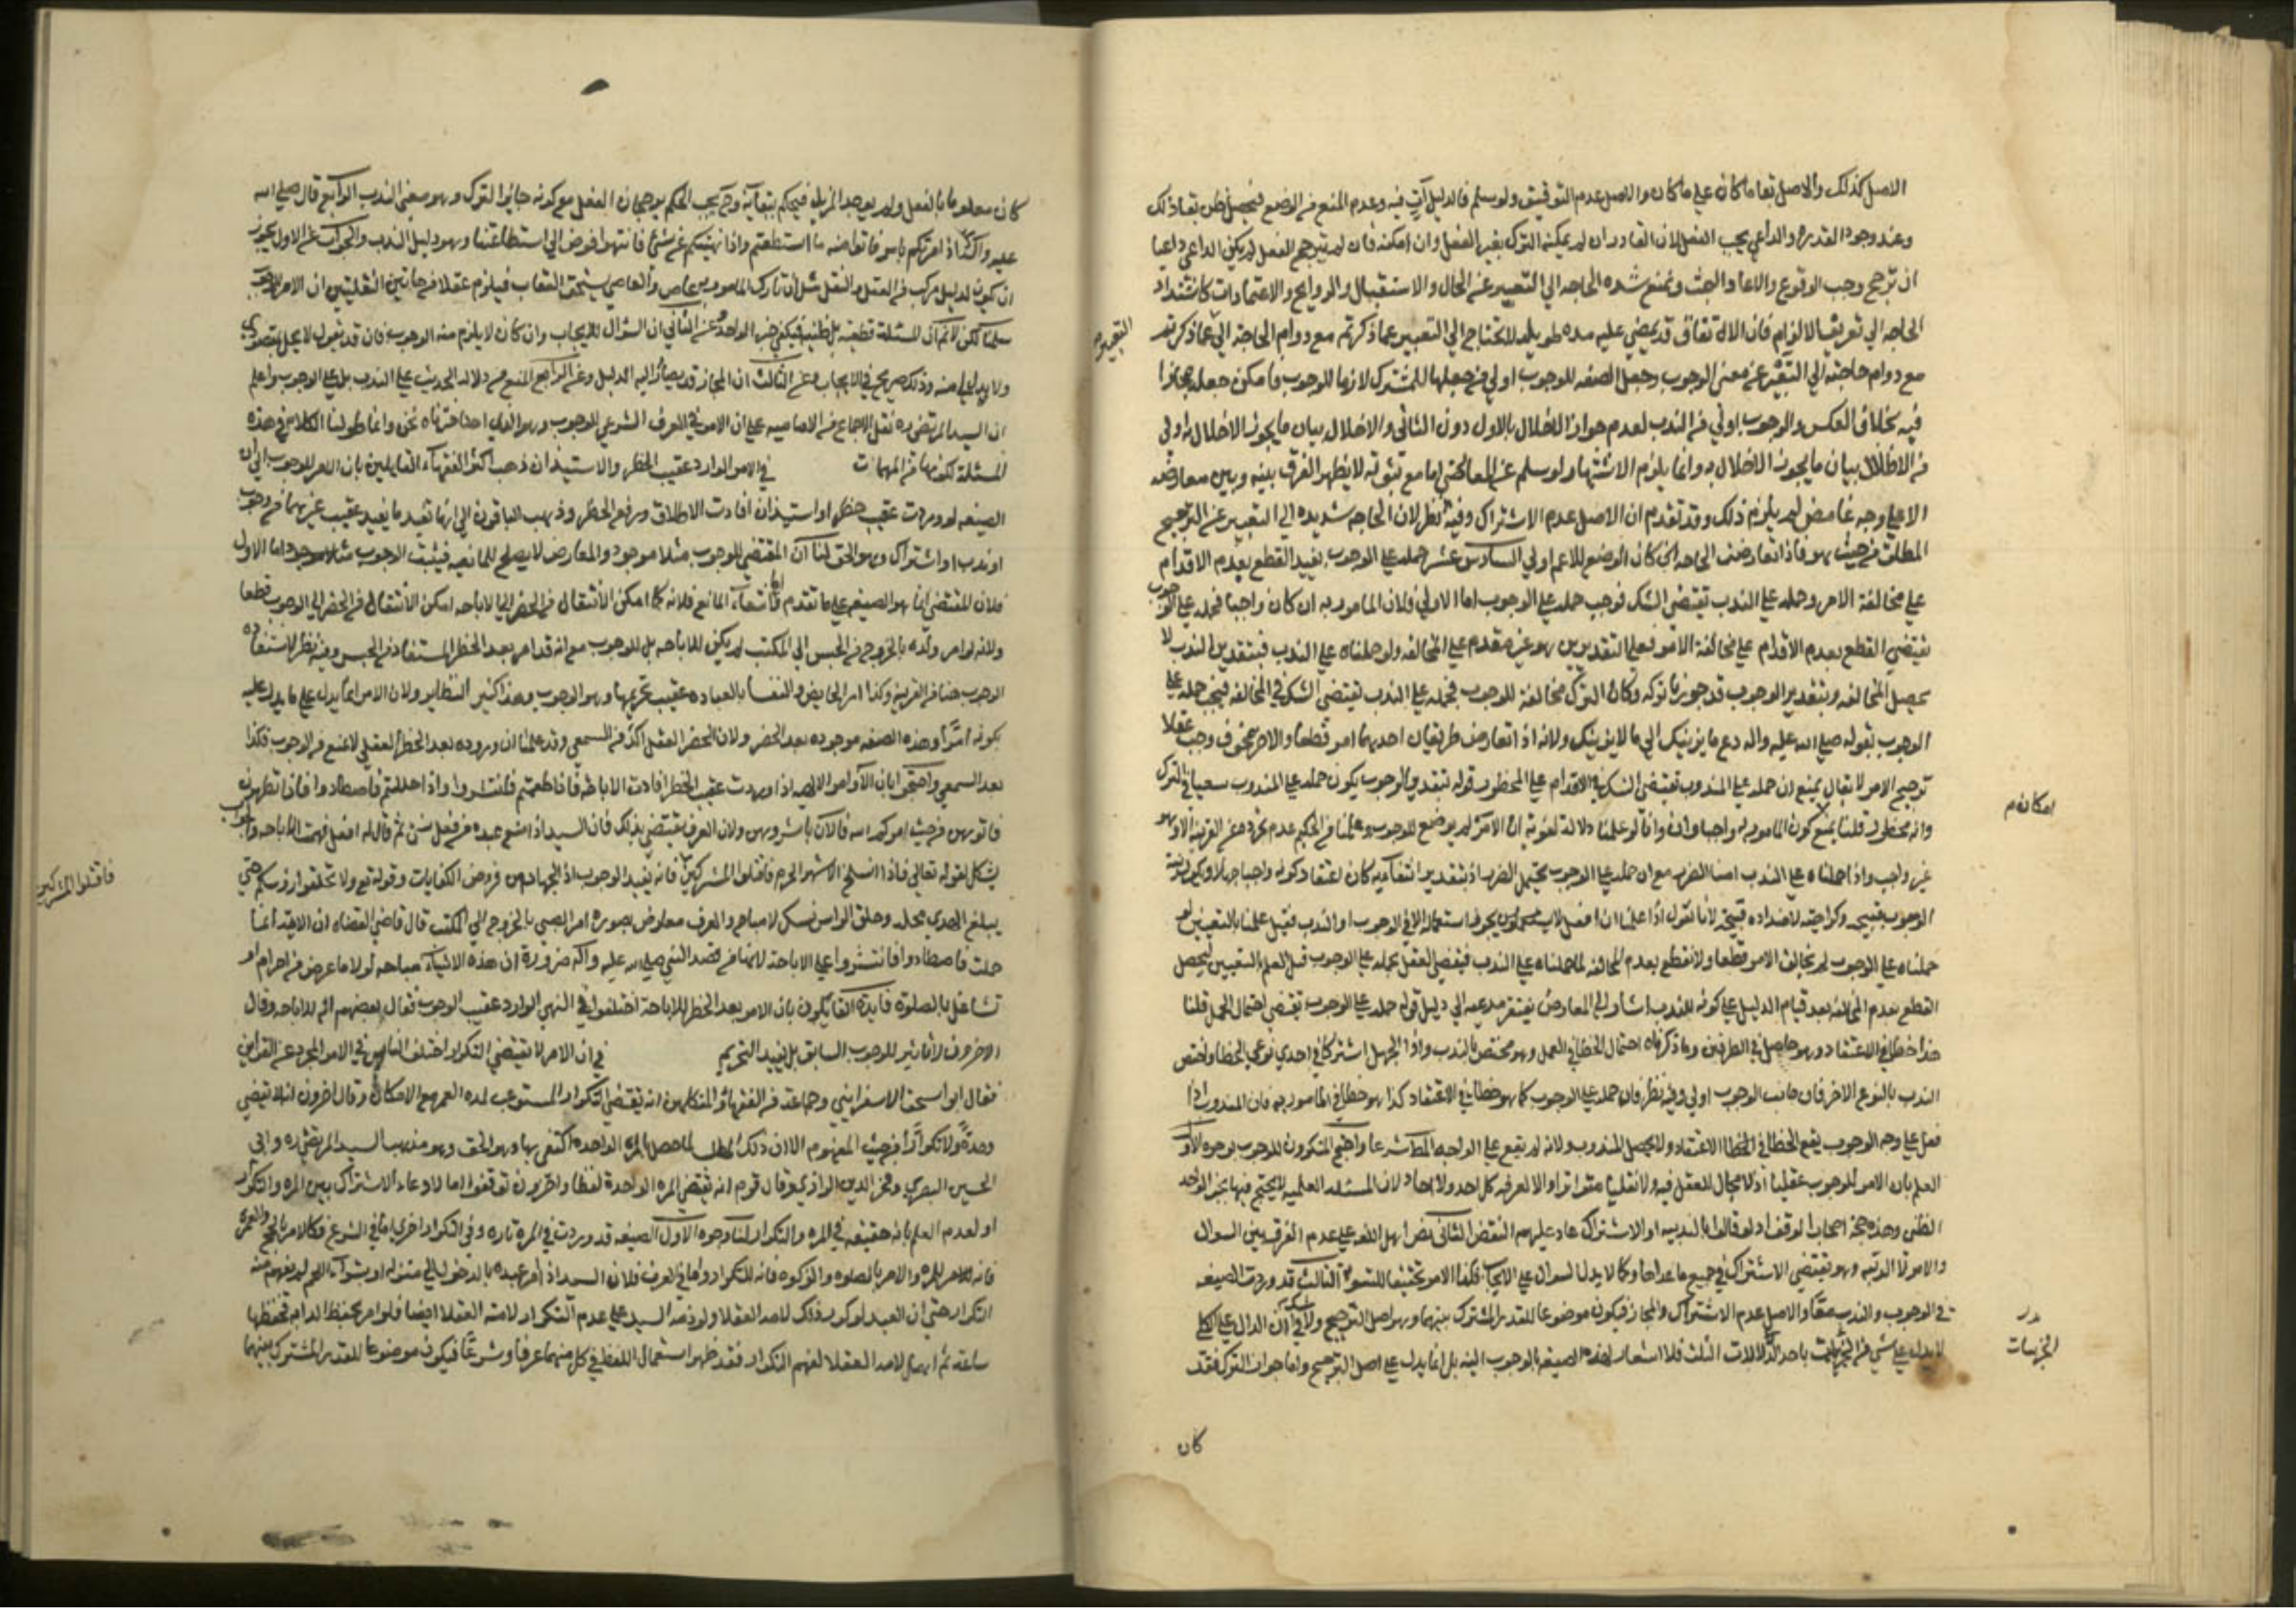 الاصل كذلك والاصل بقا ما كان على ما كان والاصل عدم التوقيف ولو سلم فالدليل آت فيه وعدم المنع من الوضع فيحصل ظن بقا ذلك
وعند وجود القدرة والداعي يجب الفعل لان القادر ان لم يمكنه الترك بغير الفعل وان امكنه فان لم يترجح الفعل لم يكن الداعي داعيا
ان ترجح وجب الوقوع والاعاد البحث ونمنع شده الحاجه الي التعبير عن الحال والاستقبال والروايح والاعتمادات كاشتداد
الحاجه الي تعريف الالزام فان الانسان قد يمضي عليه مده طويله لا يحتاج الي التعبير عما ذكرتم مع دوام الحاجة الي ما ذكرته
مع دوام حاجته الي التعبير عن معنى الوجوب وجعل الصفه للوجوب اولي من جعلها للمشترك لازما للوجوب فامكن جعله مجازا
فيه بخلاف العكس والوجوب اولي من الندب لعدم جواز الاخلال بالاول دون الثاني والاخلال ببيان ما يجوز الاخلال به اولي
من الاخلال ببيان ما لا يجوز الاخلال به وانما يلزم الاشتهار لو سلم عن المعارض اما مع ثبوته لا يظهر الفرق بينه وبين معارضه
الا على وجه غامض لم يلزم ذلك وقد تقدم ان الاصل عدم الاشتراك وفيه نظر لان الحاجه شديده الي التعبير عن الترجيح
المطلق من حيث هو فاذا تعارضت الحاجه الى كان الوضع للاعم اولي السادس عشر حمله على الوجوب يفيد القطع بعدم الاقدام
على مخالفة الامر وحمله على الندب يقتضي الشك فوجب حمله على الوجوب اما الاولي فلان المامور به ان كان واجبا فحمله على الوجوب
يقتضي القطع بعدم الاقدام على مخالفة الامر فعلى التقديرين هو غير مقدم على المخالفه ولو حملناه على الندب فبتقدير الندب لا
يحصل المخالفه وبتقدير الوجوب قد جوزنا تركه وكان الترك مخالفة للوجوب فحمله على الندب يقتضي الشك في المخالفه فيجب حمله على
الوجوب لقوله صلى الله عليه واله دع ما يريبك الي ما لا يريبك ولانه اذا تعارض طريقان احدهما امن قطعا والاخر مخوف وجب عقلا
ترجيح الامن لا يقال يمنع ان حمله على المندوب يقتضي الشك في الاقدام على المحظور قوله بتقدير الوجوب يكون حمله على المندوب سعيا في الترك
وانه محظور قلنا يمنع كون المامور به واجبا وان وانا لو علمنا دلالة لغوية ان الامر لم يوضع للوجوب وعلمنا من الحكيم عدم تجرده عن القرينه الا وهو
غير واجب واذا حملناه على الندب امنا الضرر مع ان حمله على الوجوب يحتمل الضرر اذ بتقدير انتفائه كان اعتقاد كونه واجبا جهلا وتكون نية
الوجوب قبيحه وكراهيته لاضداده قبيحة لانا نقول اذا علمنا ان افعل لا يجوز استعمالها الا في الوجوب او الندب فقبل علمنا بالتعيين لو
حملناه على الوجوب لم يخالف الامر قطعا ولا نقطع بعدم المخالفه لما حملناه على الندب فيقضي العقل بحمله على الوجوب قبل العلم بالتعيين ليحصل
القطع بعدم المخالفه بعد قيام الدليل على كونه للندب اشاره الي المعارض يفتقر مدعيه الي دليل قوله حمله على الوجوب يقتضي احتمال الجهل قلنا
هذا خطا في الاعتقاد وهو حاصل في الطرفين وما ذكرناه احتمال الخطا في العمل وهو مختص بالندب واذا الجهل اشتركا في احدي نوعي الخطا واختص
الندب بالنوع الاخر فان جانب الوجوب اولي وفيه نظر فان حمله على الوجوب كما هو خطا في الاعتقاد كذا هو خطا في المامور به فان المندوب اذا
فعل على وجه الوجوب يقع الخطا في الخطا الاعتقاد ولا يحصل المندوب ولانه لم يقع على الواجب المط شرعا واحتج المنكرون للوجوب بوجوه الاول
العلم بان الامر للوجوب عقليا اذ لا مجال للعقل فيه ولا نقليا متواترا والا لعرفه كل احد ولا احاد لان المسئله العلميه لا يحتج فيها بخبر الواحد
الظني وهذه حجة اصحاب الوقف اذ لو قالوا بالندبيه او الاشتراك عاد عليهم النقض الثاني نص اهل اللغه على عدم الفرق بين السوال
والامر الا الرتبه وهو يقتضي الاشتراك في جميع ما عداها وكما لا يدل السوال على الايجاب فكذا الامر تحقيقا للتسوية الثالث قد وردت الصيغه
في الوجوب والندب حقا والاصل عدم الاشتراك والمجاز فيكون موضوعا للقدر المشترك بينهما وهو اصل الترجيح ولا شك في ان الدال على الكلي
لا يدل على شي من الجزئيات باحد الدلالات الثلث فلا اشعار لهذه الصيغه بالوجوب البته بل انما يدل على اصل الترجيح واما جواز الترك فقد
التعبير م
امكانه م
الجزئيات
كان
كان معلوما بالفعل ولم يوجد المزيل فيحكم ببقائه وح يجب الحكم برجحان الفعل مع كونه جايز الترك وهو معنى الندب الرابع قال صلى الله
عليه واله اذا امرتكم بامر فاتوا منه ما استطعتم واذا نهيتكم عن شئ فانتهوا فوض الي استطاعتنا وهو دليل الندب والجواب عن الاول يجوز
ان يكون لدليل مركب من العقل والنقل مثل ان تارك المامور به عاص والعاصي يستحق العقاب فيلزم عقلا من هاتين النقليتين ان الامر للوجوب
سلمنا لكن لا نم ان المسئلة قطعيه بل ظنيه فيكفي خبر الواحد وعن الثاني ان السؤال للايجاب وان كان لا يلزم منه الوجوب فان قد يقول لا يخل بمقصودي
ولا بد لي منه وذلك صريح في الايجاب وعن الثالث ان المجاز قد يصار اليه الدليل وعن الرابع المنع من دلالة الحديث على الندب بل على الوجوب واعلم
ان السيد المرتضى ره نقل الاجماع من الاماميه على ان الامر في العرف الشرعي للوجوب وهو الذي اخترناه نحن وانما طولنا الكلام في هذه
المسئلة لكونها من المهمات في الامر الوارد عقيب الحظر والاستيذان ذهب اكثر الفقهاء القايلين بان الامر للوجوب الي ان
الصيغه لو وردت عقيب حظر او استيذان افادت الاطلاق ورفع الحظر وذهب الباقون الي انها تفيد ما يفيد عقيب غيرهما من وجوب
او ندب او اشتراك وهو الحق لنا ان المقتضي للوجوب مثلا موجود والمعارض لا يصلح للمانعيه فيثبت الوجوب اما الاول
فلان المقتضي انما هو الصيغه على ما تقدم واما انتفاء المانع فلانه كما امكن الانتقال من الحظر الي الاباحه امكن الانتقال من الحظر الي الوجوب قطعا
ولانه لو امر ولده بالخروج من الحبس الي المكتب لم يكن للاباحه بل للوجوب مع انه قد امر بعد الحظر المستفاد من الحبس وفيه نظر لاستفاده
الوجوب هنا من القرينه وكذا امر الحايض والنفسا بالعباده عقيب تحريمها وهو للوجوب وهذا كثير النظاير ولان الامر انما يدل على ما يدل عليه
بكونه امرا وهذه الصفه موجوده بعد الحضر ولان الحضر العقلي اكد من السمعي وقد علمنا ان وروده بعد الحظر العقلي لا يمنع من الوجوب فكذا
بعد السمعي واحتجوا بان الاوامر الالهيه اذا وردت عقيب الحظر افادت الاباحه فاذا طعمتم فانتشروا واذا حللتم فاصطادوا فاذا تطهرن
فاتوهن من حيث امركم الله فالان باشروهن ولان العرف يقتضي بذلك فان السيد اذا منع عبده من فعل شئ ثم قال له افعل فهمت الاباحه والجواب
يشكل بقوله تعالى فاذا انسلخ الاشهر الحرم فاقتلوا المشركين فانه يفيد الوجوب اذ الجهاد من فروض الكفايات وقوله تع ولا تحلقوا رؤسكم حتى
يبلغ الهدي محله وحلق الراس نسك لا مباح والعرف معارض بصوره امر الصبي بالخروج الي المكتب قال قاضي القضاه ان الايه انما
حلت فاصطادوا فانتشروا على الاباحة لانا من قصد النبي صلى الله عليه واله ضرورة ان هذه الاشياء مباحه لولا ما عرض من احرام او
تشاغل بالصلوة فايدة القايلون بان الامر بعد الحظر للاباحة اختلفوا في النهي الوارد عقيب الوجوب فقال بعضهم انه للاباحه وقال
الاخرون لا تاثير للوجوب السابق بل يفيد التحريم في ان الامر لا يقتضي التكرار اختلف الناس في الامر المجرد عن القراين
فقال ابو اسحق الاسفرايني وجماعة من الفقهاء والمتكلمين انه يقتضي التكرار المستوعب لمده العمر مع الامكان وقال اخرون انه لا يقتضي
وحدة ولا تكرارا من حيث المفهوم الا ان ذلك المط لما حصل بالمره الواحده اكتفى بها وهو الحق وهو مذهب السيد المرتضى ره وابي
الحسين البصري وفخر الدين الرازي وقال قوم انه يقتضي المره الواحدة لفظا واخرون توقفوا اما لادعاء الاشتراك بين المره والتكرار
او لعدم العلم بانه حقيقه في المره والتكرار لنا وجوه الاول الصيغه قد وردت في المرة تاره وفي التكرار اخري اما في الشرع فكالامر بالحج والعمرة
فانه للمره والامر بالصلوه والزكوه فانه للتكرار واما في العرف فلان السيد اذا امر عبده بالدخول الي منزله او بشراء اللحم لم يفهم منه
التكرار حتى ان العبد لو كرر ذلك لامه العقلا ولو ذمه السيد على عدم التكرار لامته العقلا ايضا فلو امر بحفظ الدابه فحفظها
ساعة ثم اهمل لامه العقلا لفهم التكرار فقد ظهر استعمال اللفظ في كل منهما عرفا وشرعا فيكون موضوعا للقدر المشترك بينهما
فاقتلوا المشركين